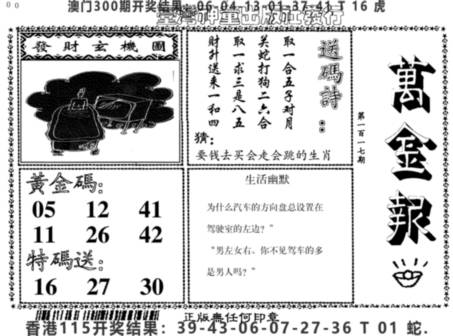 澳门300期开奖结果：06-04-13-01-37-41 T 16 虎
發財玄機圖
送碼詩：
取一合五子对月
关蛇打狗二六合
取一求三是八五
財升送来一和四
猜：
要钱去买会走会跳的生肖
第一百一七期
萬金報
黃金碼：
05 12 41
11 26 42
特碼送：
16 27 30
生活幽默
为什么汽车的方向盘总设置在
驾驶室的左边？”
“男左女右、你不见驾车的多
是男人吗？”
正版無任何印章
香港115开奖结果：39-43-06-07-27-36 T 01 蛇.